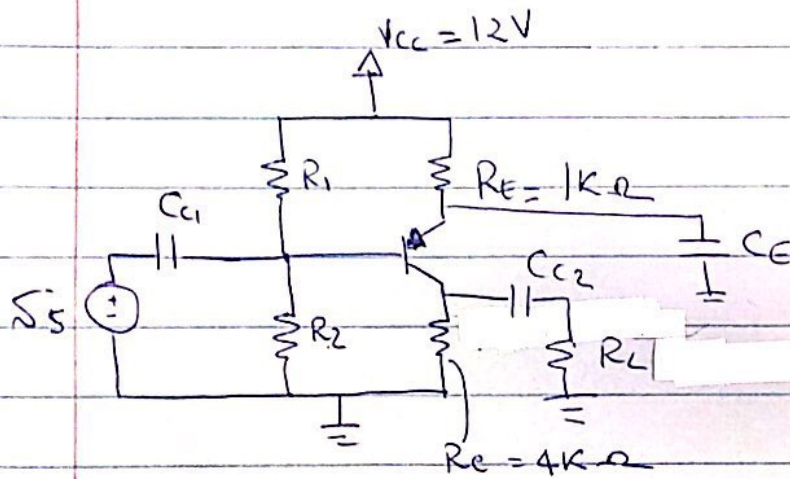 Vcc = 12V
R1
RE = 1KΩ
Cc1
CE
Cc2
R2
RL
Rc = 4KΩ